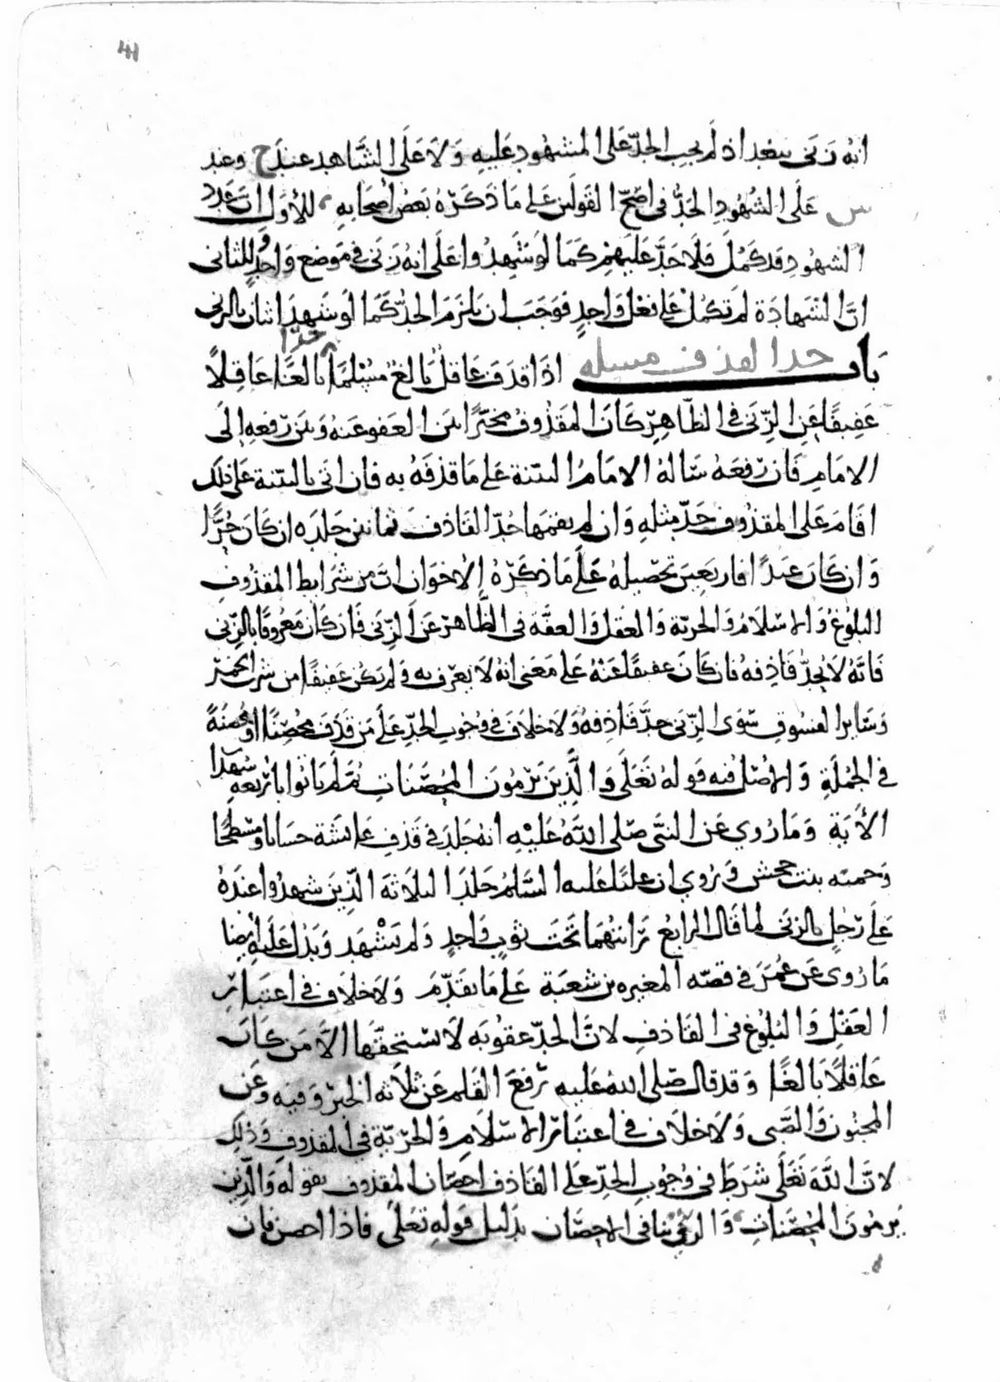 41
انه زنى ببغداد لم يجب الحدّ على المشهود عليه ولا على الشاهد عند ح وعند
س على الشهود الحدّ فى اصحّ القولين على ما ذكره بعض اصحابه للاول ان عدد
الشهود قد كمل فلا حدّ عليهم كما لو شهدوا على انه زنى فى موضع واحد وللثانى
انّ الشهادة لم تكمل على فعل واحد فوجب ان يلزم الحدّ كما لو شهد اثنان بالزنى
باب حد القذف مسئله اذا قذف عاقل بالغ مسلما حرّا بالغا عاقلاً
عفيفًا عن الزنى فى الظاهر كان المقذوف مخيّرا بين العفو عنه وبين رفعه الى
الامام فان رفعه ساله الامام البيّنة على ما قذفه به فان اتى بالبيّنة على ذلك
اقام على المقذوف حدّ مثله وان لم يقمها حدّ القاذف ثمانين جلده ان كان حرًّا
وان كان عبدًا فاربعين تحصيله على ما ذكره الاخوان ان من شرايط المقذوف
البلوغ والاسلام والحرية والعقل والعفّة فى الظاهر عن الزنى فان كان معروفا بالزنى
فانّه لا يُحدّ قاذفه فان كان عفيفًا عنه على معنى انه لا يعرف به ولم يكن عفيفًا من شرب الخمر
وسائر الفسوق سوى الزنى حدّ قاذفه ولا خلاف فى وجوب الحدّ على من قذف محصنًا او محصنةً
فى الجملة والاصل فيه قوله تعلى والذين يرمون المحصنات ثم لم ياتوا باربعه شهدا
الآية وما روي عن النبى صلى الله عليه انه جلد فى قذف عائشة حسانا ومسطحا
وحمنه بنت جحش وروي ان عليا عليه السلم جلد الثلاثة الذين شهدوا عنده
على رجل بالزنى لما قال الرابع رايتهما تحت ثوب واحد ولم يشهد ويدل عليه ايضا
ما روى عن عمر فى قصه المغيره بن شعبة على ما تقدّم ولا خلاف فى اعتبار
العقل والبلوغ فى القاذف لانّ الحدّ عقوبه لا يستحقّها الا من كان
عاقلاً بالغًا وقد قال صلى الله عليه رفع القلم عن ثلاثه الخبر وفيه وعن
المجنون والصبى ولا خلاف فى اعتبار الاسلام والحرّية فى المقذوف وذلك
لانّ الله تعلى شرط فى وجوب الحدّ على القاذف احصان المقذوف بقوله والذين
يرمون المحصنات والرق ينافى الاحصان بدليل قوله تعلى فاذا احصن فان